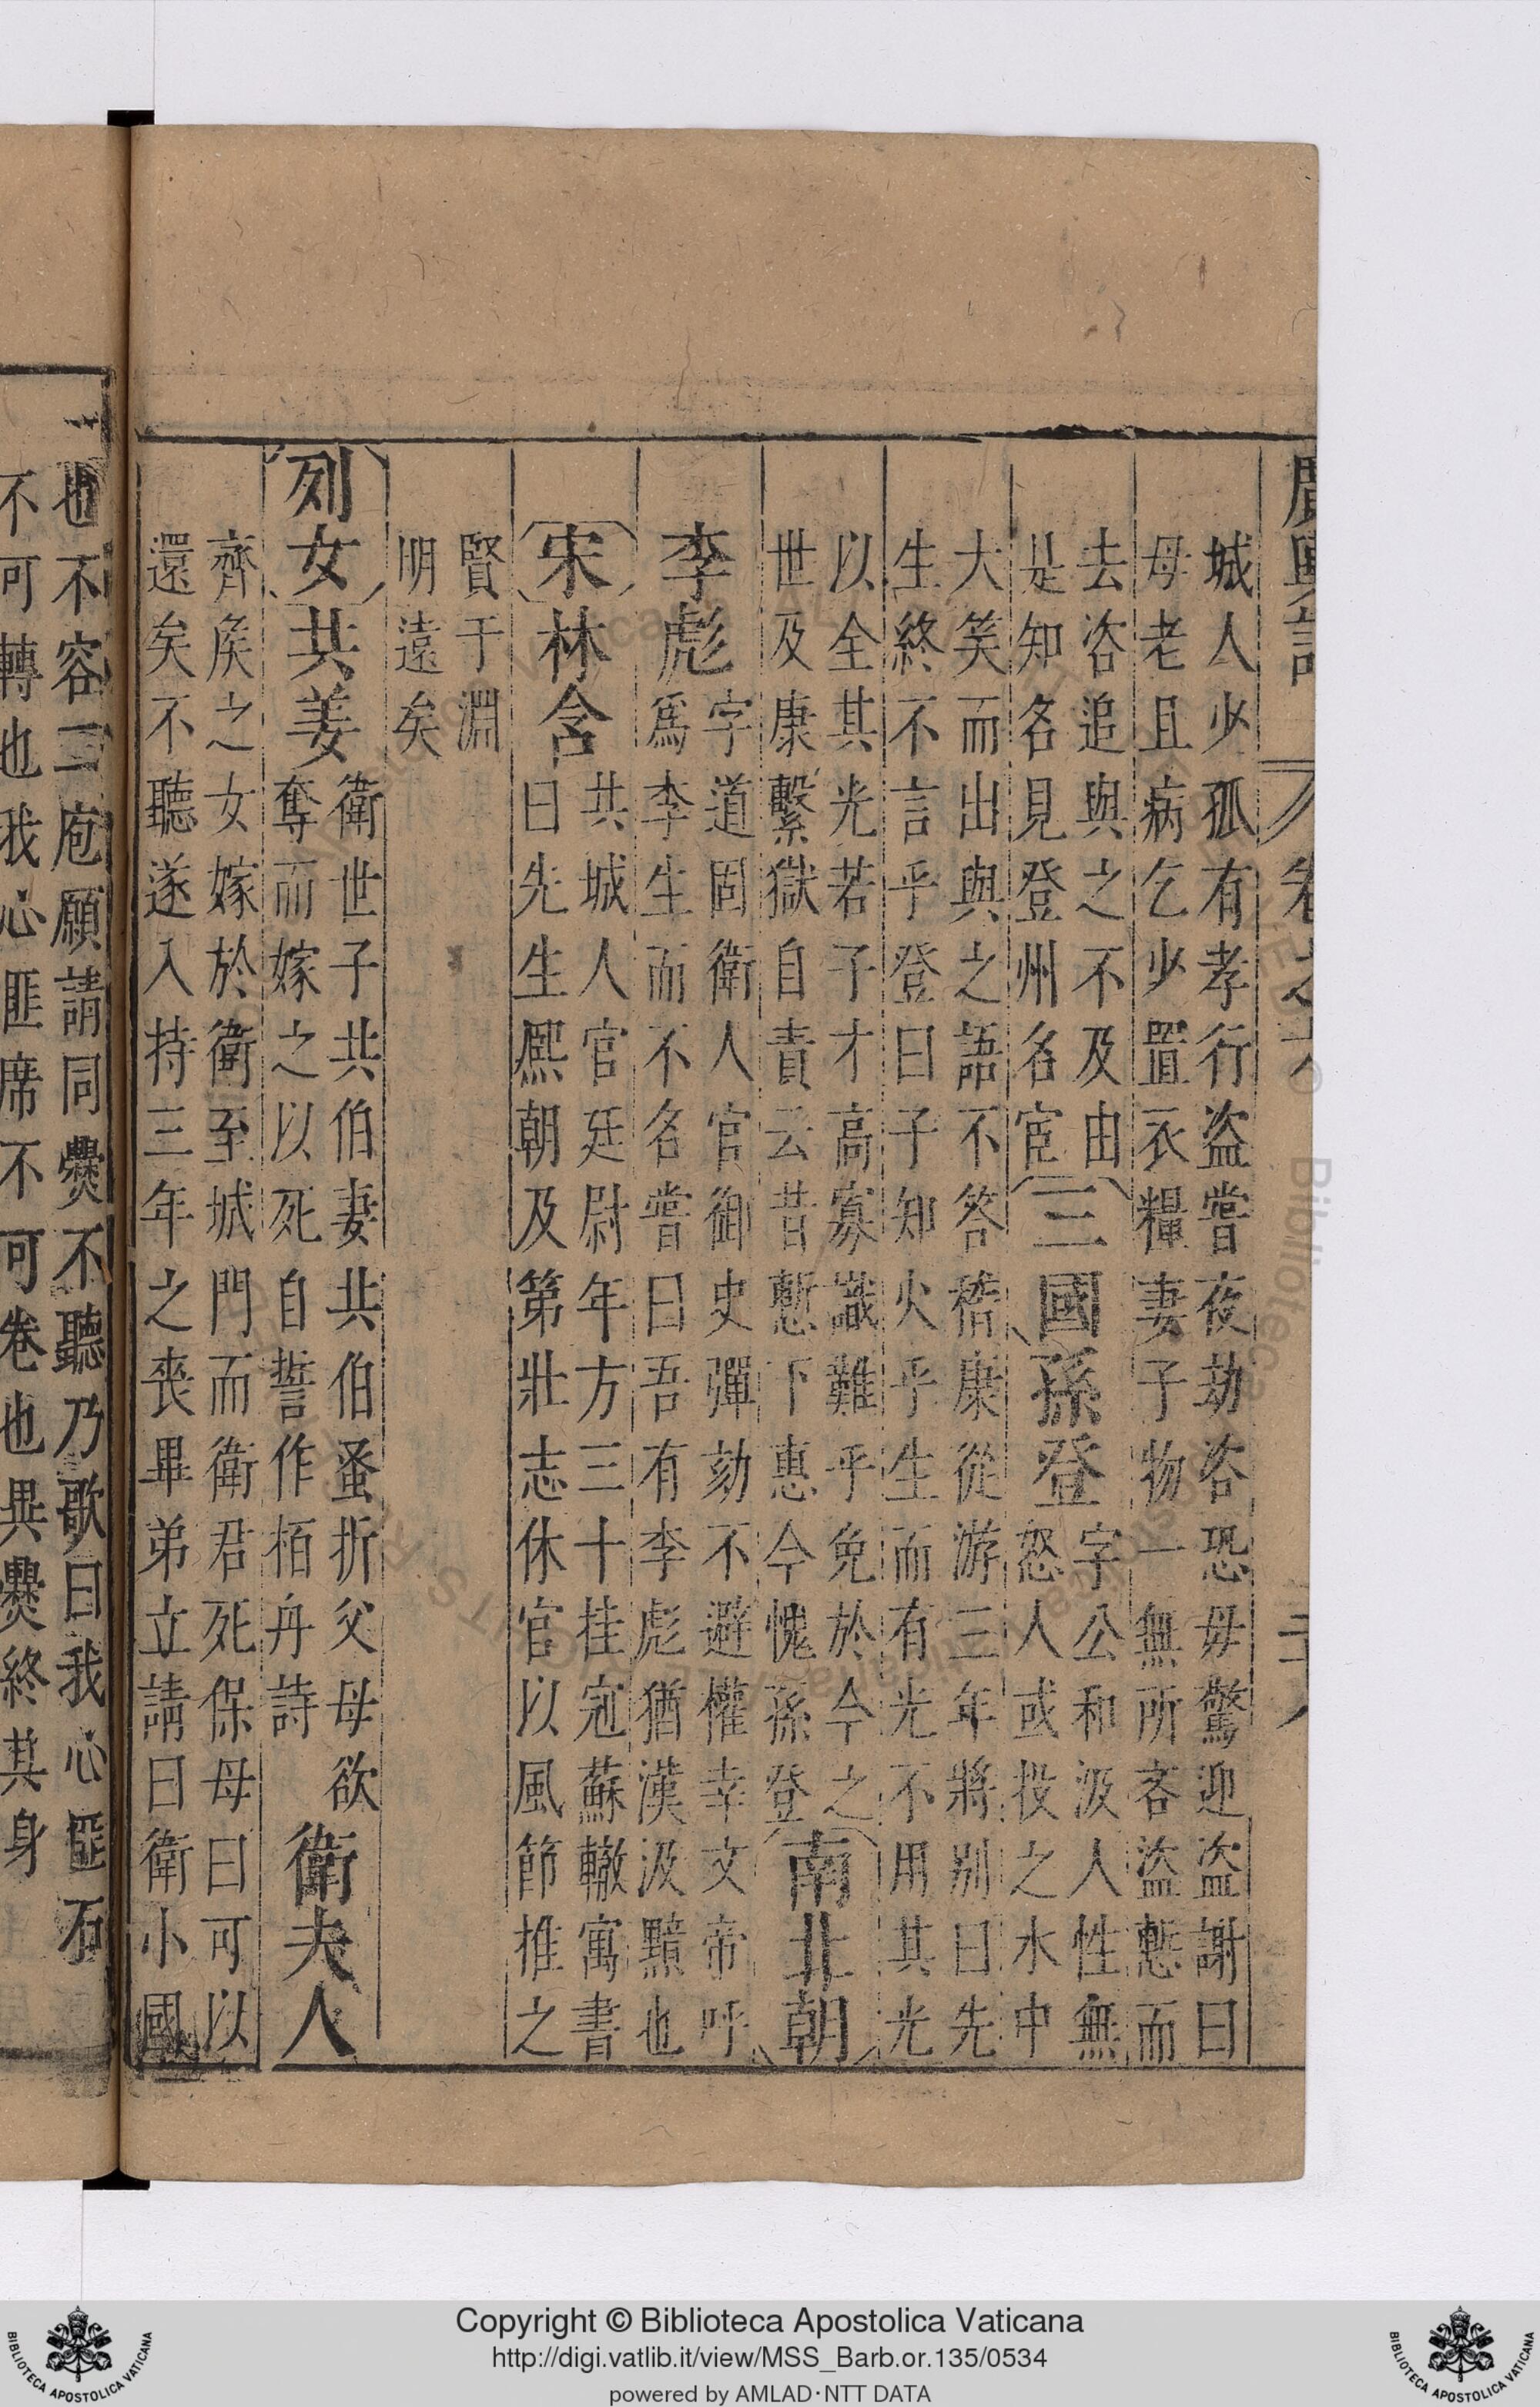 廣輿記 卷之六
城人少孤有孝行盜嘗夜劫咨恐毋驚迎盜謝曰
母老且病乞少置衣糧妻子物一無所吝盜慙而
去咨追與之不及由
是知名見登州名宦
三國
孫登
字公和汲人性無
怒人或投之水中
大笑而出與之語不答嵇康從游三年將别曰先
生終不言乎登曰子知火乎生而有光不用其光
以全其光若子才高寡識難乎免於今之
世及康繫獄自責云昔慙下惠今愧孫登
南北朝
李彪
字道固衛人官御史彈劾不避權幸文帝呼
為李生而不名嘗曰吾有李彪猶漢汲黯也
宋
林含
共城人官廷尉年方三十挂冠蘇轍寓書
曰先生熈朝及第壯志休官以風節推之
賢于淵
明遠矣
列女
共姜
衛世子共伯妻共伯蚤折父母欲
奪而嫁之以死自誓作栢舟詩
衛夫人
齊矦之女嫁於衛至城門而衛君死保母曰可以
還矣不聽遂入持三年之喪畢弟立請曰衛小國
也不容二庖願請同爨不聽乃歌曰我心匪石
不可轉也我心匪席不可卷也異爨終其身
Copyright © Biblioteca Apostolica Vaticana
http://digi.vatlib.it/view/MSS_Barb.or.135/0534
powered by AMLAD·NTT DATA
BIBLIOTECA APOSTOLICA VATICANA
BIBLIOTECA APOSTOLICA VATICANA